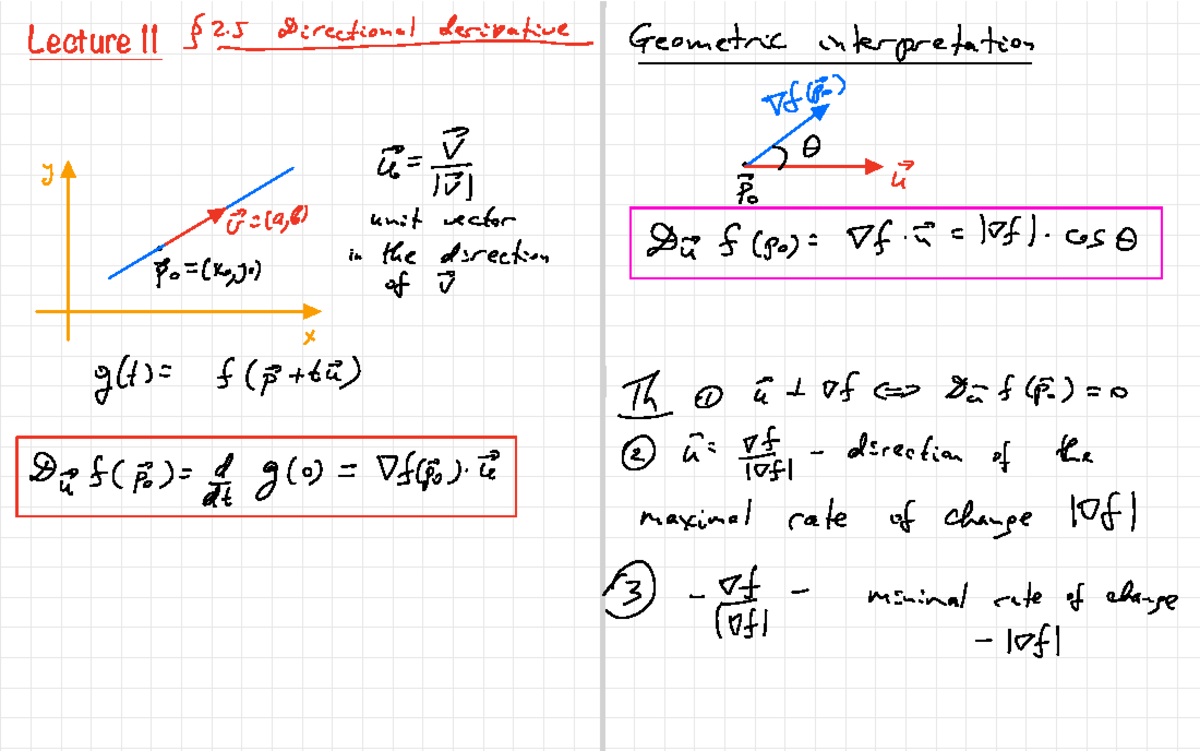 Lecture 11 § 2.5 Directional derivative
y
u⃗ = v⃗ / |v⃗|
v⃗ = (a, b)
unit vector
in the direction
of v⃗
p⃗₀ = (x₀, y₀)
x
g(t) = f(p⃗ + tu⃗)
D_u⃗ f(p⃗₀) = d/dt g(0) = ∇f(p⃗₀) · u⃗
Geometric interpretation
∇f(p⃗₀)
θ
u⃗
p⃗₀
D_u⃗ f(p₀) = ∇f · u⃗ = |∇f| · cos θ
Th ① u⃗ ⊥ ∇f ⟺ D_u⃗ f(p⃗₀) = 0
② u⃗ = ∇f / |∇f| - direction of the
maximal rate of change |∇f|
③ - ∇f / |∇f| - minimal rate of change
- |∇f|